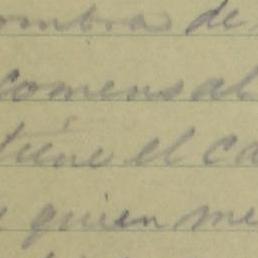 ombra de
comensal
tiene el ca
quien me